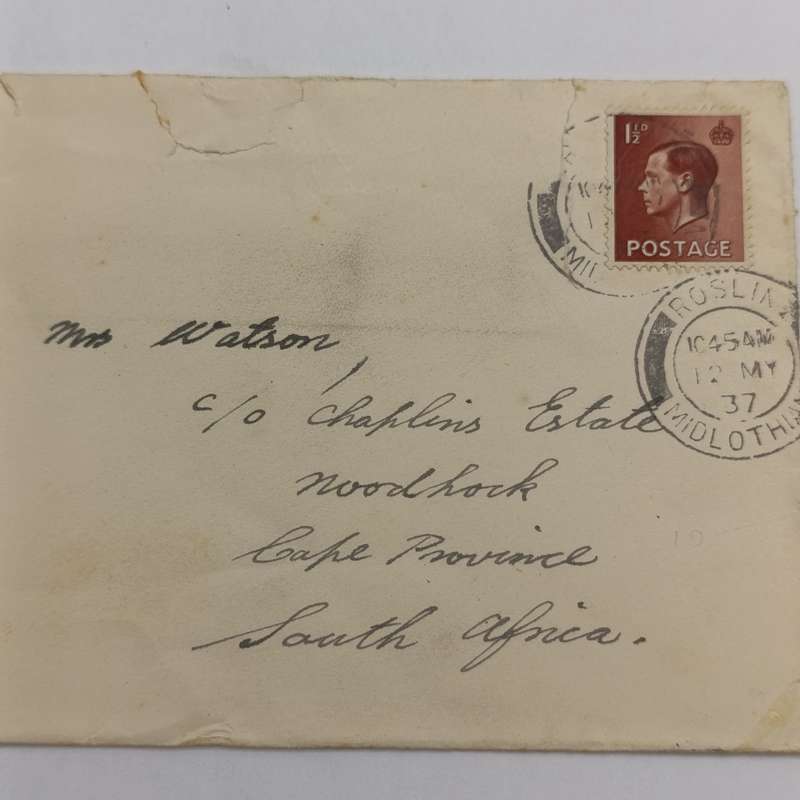 1½D
POSTAGE
ROSLIN
10 45 AM
12 MY
37
MIDLOTHIAN
Mrs Watson,
c/o Chaplins Estate
Noordhock
Cape Province
South Africa.